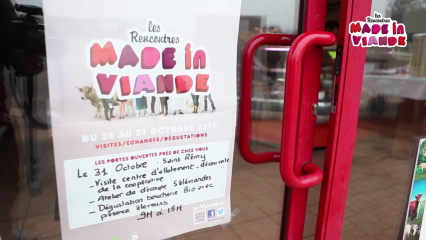 les
Rencontres
MADE in
VIANDE
DU 25 AU 31 OCTOBRE
VISITES/ÉCHANGES/DÉGUSTATIONS
LES PORTES OUVERTES PRÈS DE CHEZ VOUS
Le 31 Octobre, Saint Rémy
- Visite centre d'allotement - découverte
de la coopérative
- Atelier de découpe Salomandes
- Dégustation boucherie Bio avec
présence éleveurs
9H à 18H
les
Rencontres
MADE in
VIANDE